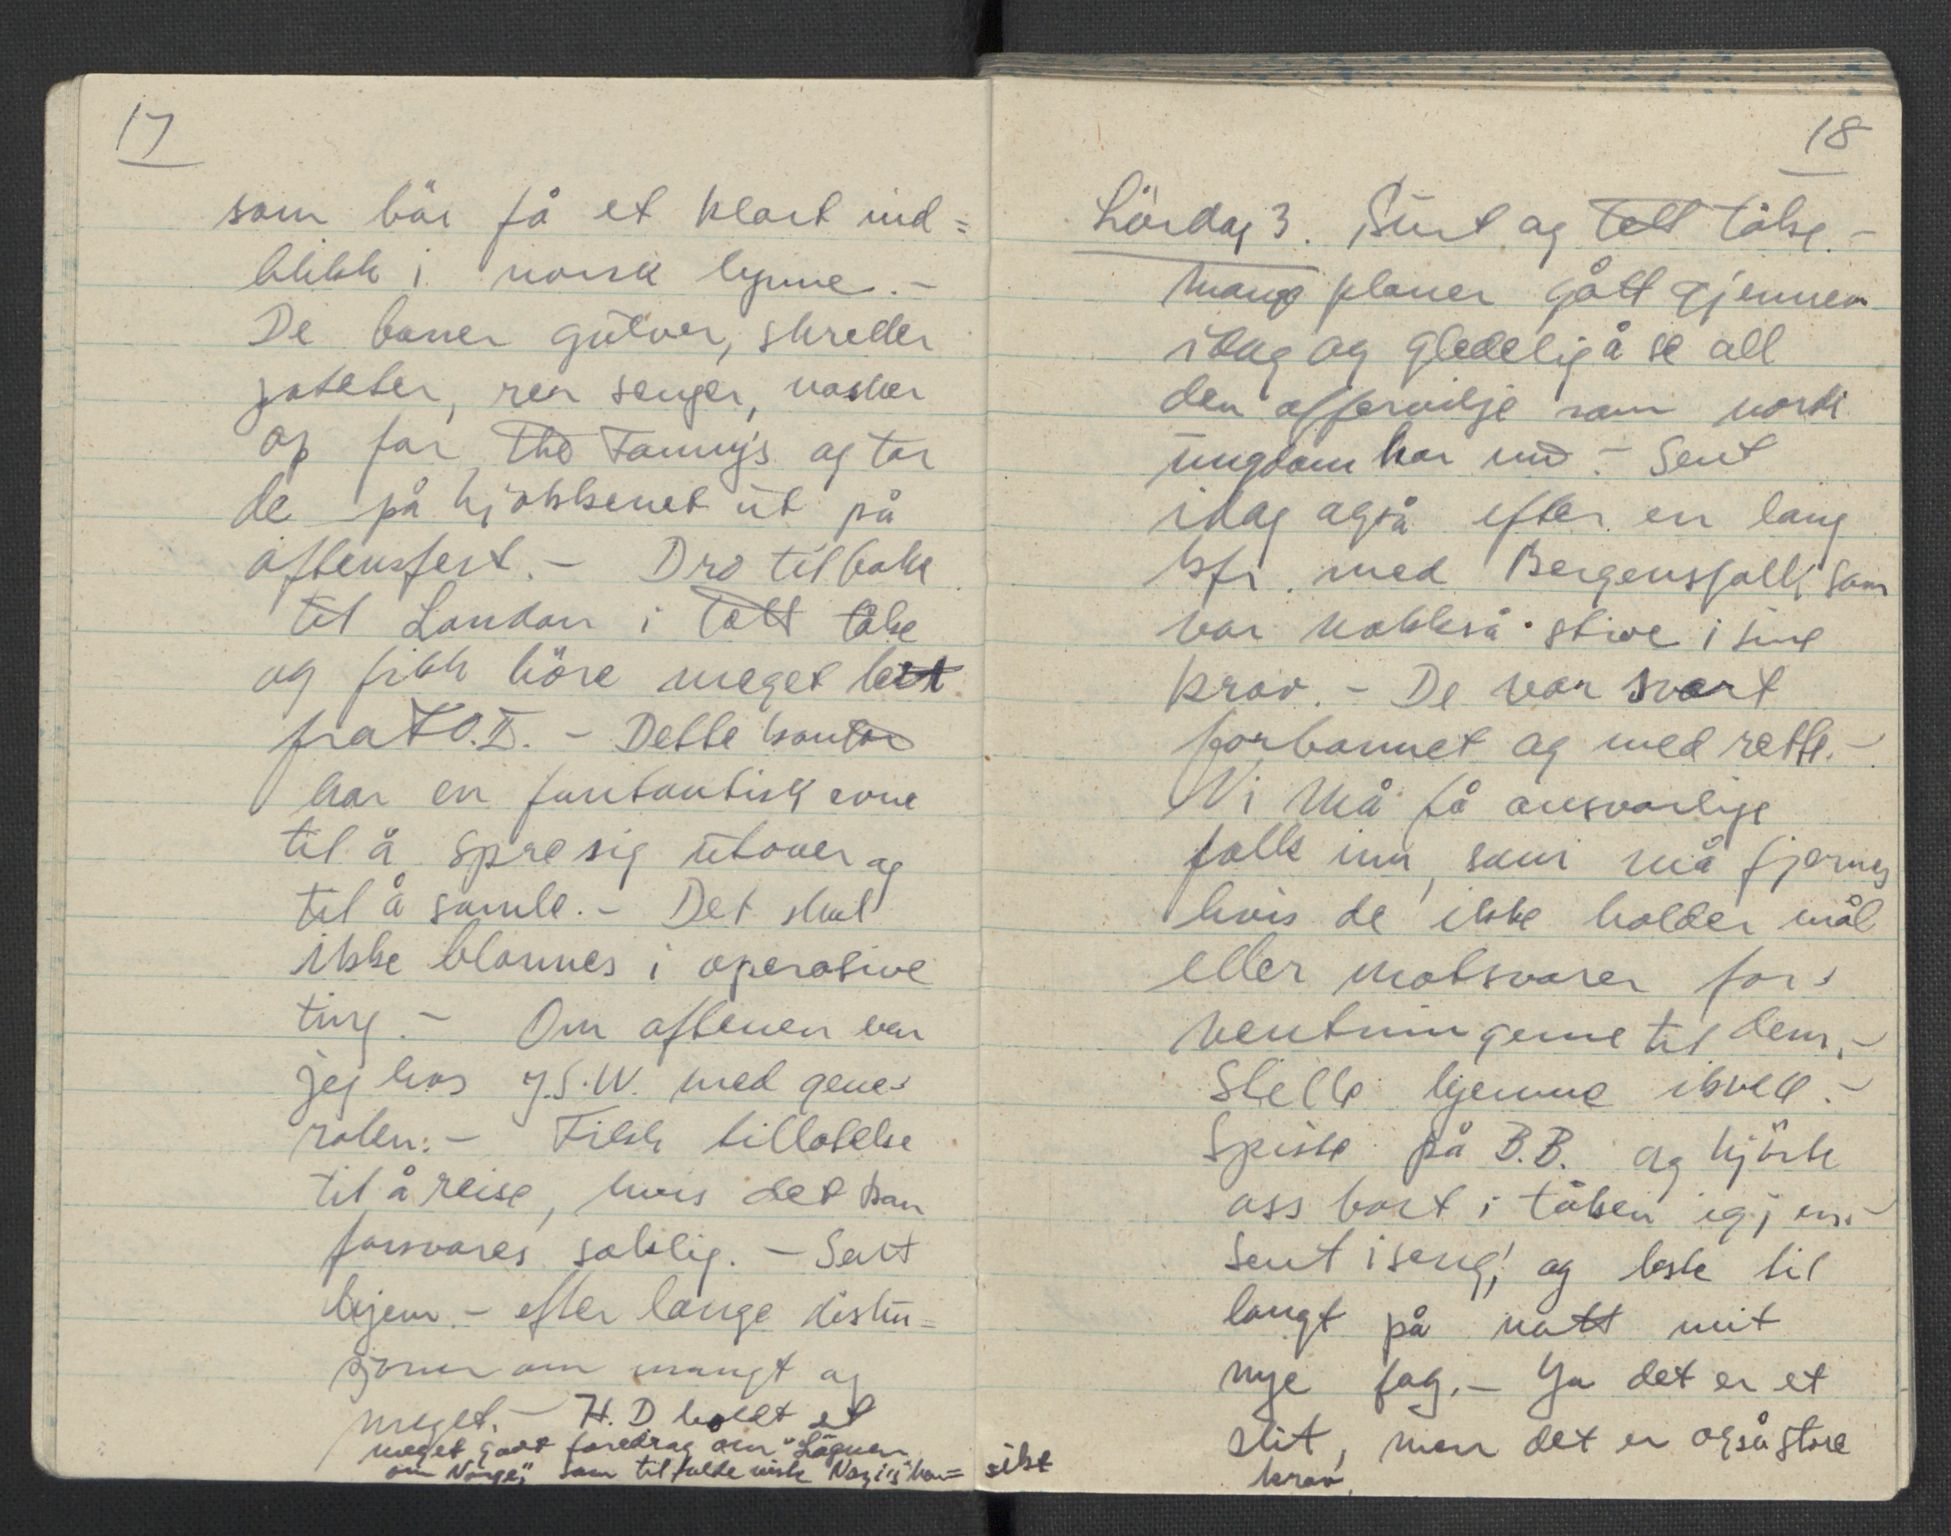 17
som bör få et klart ind=
blikk i norsk lynne.-
De boner gulver, skreller
poteter, rer senger, vasker
op for the Fannys og tar
de på kjøkkenet ut på
aftensfest.- Dro tilbake
til London i tett tåke
og fikk höre meget lett
fra F.O.II. - Dette kontor
har en fantastisk evne
til å spre sig utover og
til å samle.- Det skal
ikke blannes i operative
ting.- Om aftenen var
jeg hos J.S.W. med gene-
ralen.- Fikk tillatelse
til å reise, hvis det kan
forsvares saklig. - Sent
hjem.- efter lange disku=
sjoner om mangt og
meget.- H.D holdt et
meget godt foredrag om "Lögnen
om Norge", som tilfulde viste Nazis han=
sikt
18
Lördag 3. Surt og tett tåke.-
Mange planer gått gjennem
idag og gledelig å se all
den offervilje som norsk
ungdom har. - Sent
idag også efter en lang
kfr. med Bergensfolk som
var nokkså stive i sine
krav. - De var svært
forbannet og med rette.-
Vi må få ansvarlige
folk inn, som må fjernes
hvis de ikke holder mål
eller motsvarer for-
ventningerne til dem.-
Stelle hjemme ikvell.-
Spiste på B.B. og kjörte
oss bort i tåken igjen.-
Sent i seng, og leste til
langt på natt mit
nye fag.- Ja det er et
slit, men det er også store
krav.